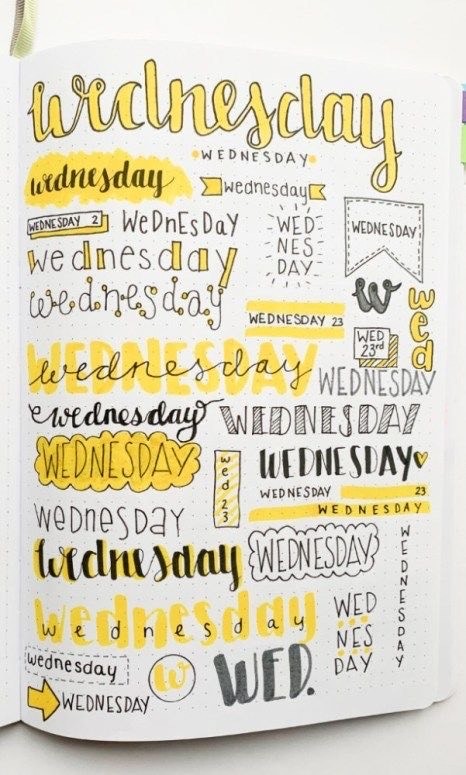 wednesday
• WEDNESDAY •
wednesday
wednesday
WEDNESDAY 2
WeDnEsDaY
WED
NES
DAY
WEDNESDAY
wednesday
wednesday
w
wed
WEDNESDAY 23
WED
23rd
WEDNESDAY
wednesday
WEDNESDAY
wednesday
WEDNESDAY
WEDNESDAY
wed23
WEDNESDAY
WEDNESDAY 23
WEDNESDAY
weDnesDAY
wednesday
WEDNESDAY
WEDNESDAY
wednesday
wednesday
WED
NES
DAY
wednesday
w
WED.
WEDNESDAY